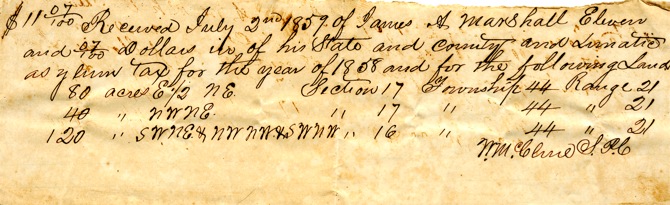 $11 07/100 Received July 2nd 1859 of James A Marshall Eleven
and 07/100 Dollars in of his State and county and Lunatic
asylum tax for the year of 1858 and for the following Land
80 acres E 1/2 NE. Section 17 Township 44 Range 21
40 " NWNE. " 17 " 44 " 21
120 " SWNE & NWNW & SWNW " 16 " 44 " 21
Wm. Cline S.P.C